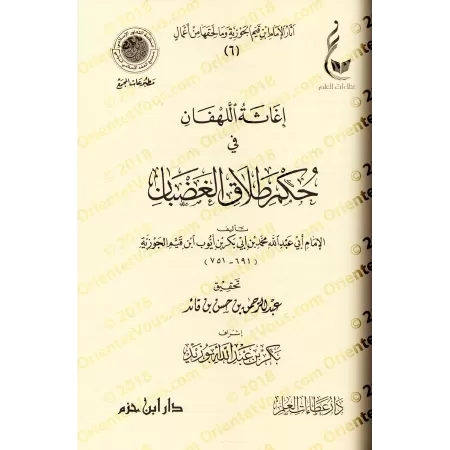 آثار الإمام ابن قيم الجوزية وما لحقها من أعمال
(٦)
عطاءات العلم
مطبوعات المجمع
إغاثة اللهفان
في
حكم طلاق الغضبان
تأليف
الإمام أبي عبد الله محمد بن أبي بكر بن أيوب ابن قيم الجوزية
(٦٩١ - ٧٥١)
تحقيق
عبد الرحمن بن حسن بن قائد
إشراف
بكر بن عبد الله أبو زيد
دار عطاءات العلم
دار ابن حزم
© 2018
OrientetVous.com